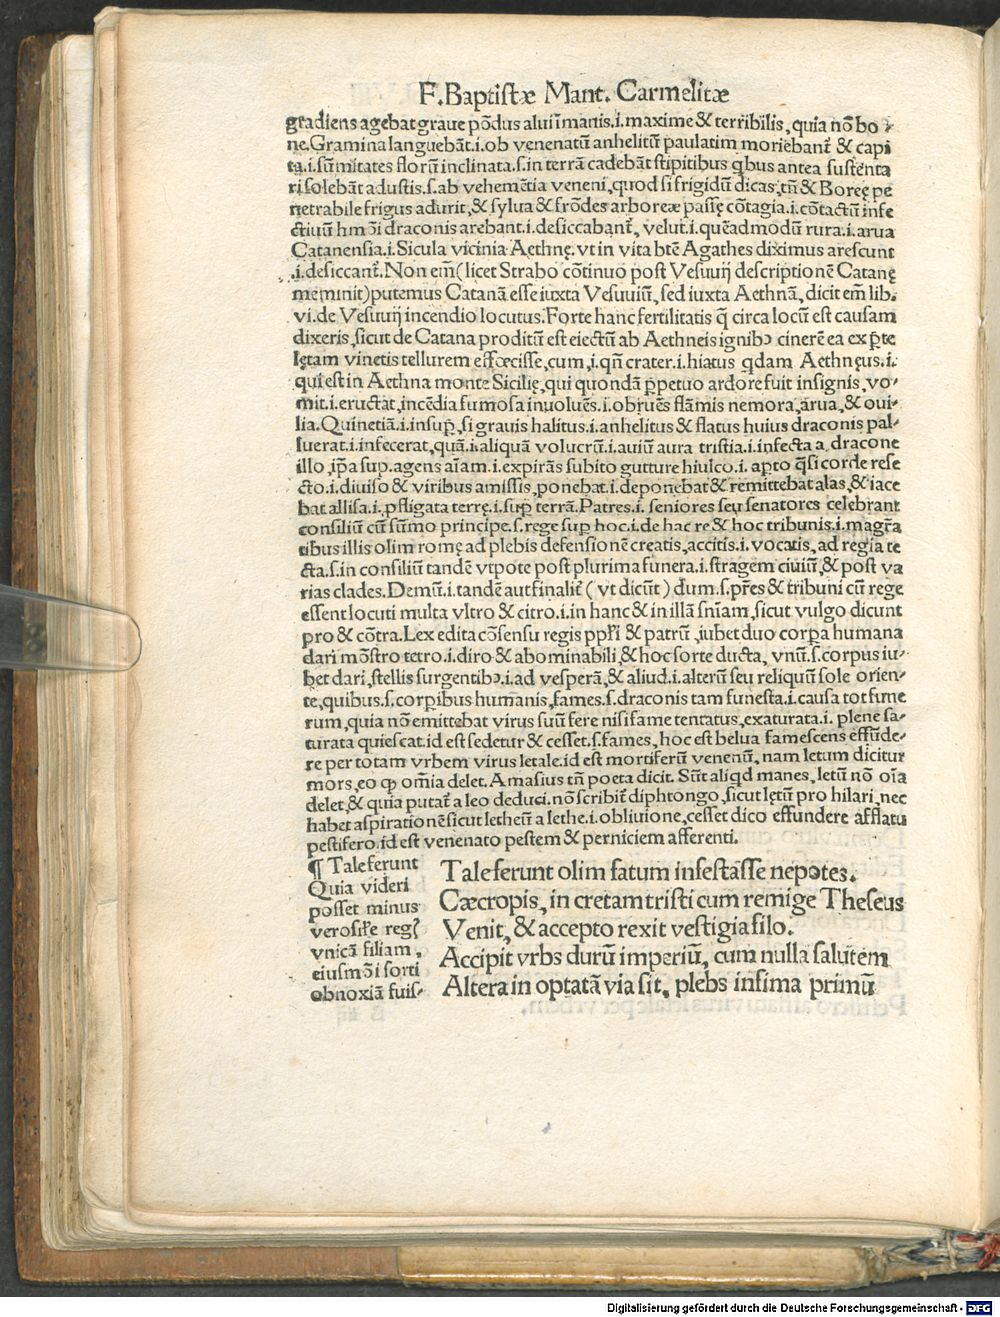 F. Baptistæ Mant. Carmelitæ
gradiens agebat graue põdus alui ĩmanis.i. maxime & terribilis, quia nõ bo
ne. Gramina languebãt.i. ob venenatũ anhelitũ paulatim moriebant̃ & capi
ta.i. sũmitates florũ inclinata.s. in terrã cadebãt stipitibus qbus antea sustenta
ri solebãt adustis.s. ab vehemẽtia veneni, quod si frigidũ dicas, tñ & Boreę pe
netrabile frigus adurit, & sylua & frõdes arboreæ passę cõtagia.i. cõtactũ infe
ctiuũ hmõi draconis arebant.i. desiccabant̃, velut.i. quẽadmodũ rura.i. arua
Catanensia.i. Sicula vicinia Aethnę. vt in vita btẽ Agathes diximus arescunt
.i. desiccant̃. Non em̃ (licet Strabo cõtinuo post Vesuuij descriptionẽ Catanę
meminit) putemus Catanã esse iuxta Vesuuiũ, sed iuxta Aethnã, dicit em̃ lib.
vi. de Vesuuij incendio locutus. Forte hanc fertilitatis q̃ circa locũ est causam
dixeris, sicut de Catana proditũ est eiectũ ab Aethneis ignibꝫ cinerẽ ea ex p̱te
lętam vinetis tellurem effœcisse, cum, i. qñ crater.i. hiatus qdam Aethnęus.i.
qui est in Aethna monte Sicilię, qui quondã p̱petuo ardore fuit insignis, vo-
mit.i. eructat, incẽdia fumosa inuoluẽs.i. obruẽs flãmis nemora, arua, & oui-
lia. Quinetiã.i. insup̱, si grauis halitus.i. anhelitus & flatus huius draconis pal-
luerat.i. infecerat, quã.i. aliquã volucrũ.i. auiũ aura tristia.i. infecta a dracone
illo, ip̃a sup. agens aĩam.i. expirãs subito gutture hiulco.i. ap̱to q̃si corde rese
cto.i. diuiso & viribus amissis, ponebat.i. deponebat & remittebat alas, & iace
bat allisa.i. p̱fligata terrę.i. sup̱ terrã. Patres.i. seniores seu senatores celebrant
consiliũ cũ sũmo principe.s. rege sup̱ hoc.i. de hac re & hoc tribunis.i. magr̃a
tibus illis olim romę ad plebis defensionẽ creatis, accitis.i. vocatis, ad regia te
cta.s. in consiliũ tandẽ vtpote post plurima funera.i. stragem ciuiũ, & post va
rias clades. Demũ.i. tandẽ aut finalit̃ (vt dicũt) dum.s. p̃res & tribuni cũ rege
essent locuti multa vltro & citro.i. in hanc & in illã sñiam, sicut vulgo dicunt
pro & cõtra. Lex edita cõsensu regis pp̱li & patrũ, iubet duo corp̱a humana
dari mõstro tetro.i. diro & abominabili, & hoc sorte ducta, vnũ.s. corpus iu-
bet dari, stellis surgentibꝫ.i. ad vesperã, & aliud.i. alterũ seu reliquũ sole orien-
te, quibus.s. corp̱ibus humanis, fames.s. draconis tam funesta.i. causa tot fune
rum, quia nõ emittebat virus suũ fere nisi fame tentatus, exaturata.i. plene sa-
turata quiescat. id est sedetur & cesset.s. fames, hoc est belua famescens effũde-
re per totam vrbem virus letale. id est mortiferũ venenũ, nam letum dicitur
mors, eo ꝙ om̃ia delet. Amasius tñ poeta dicit. Sũt aliqd manes, letũ nõ oĩa
delet, & quia putat̃ a leo deduci. nõ scribit̃ diphtongo, sicut lętũ pro hilari, nec
habet aspirationẽ sicut letheũ a lethe.i. obliuione, cesset dico effundere afflatu
pestifero. id est venenato pestem & perniciem afferenti.
¶ Tale ferunt
Quia videri
posset minus
verosile reg̃
vnicã filiam,
eiusmõi sorti
obnoxiã fuis-
Tale ferunt olim fatum infestasse nepotes.
Cæcropis, in cretam tristi cum remige Theseus
Venit, & accepto rexit vestigia filo.
Accipit vrbs durũ imperiũ, cum nulla salutem
Altera in optatã via sit, plebs infima primũ
Digitalisierung gefördert durch die Deutsche Forschungsgemeinschaft - DFG